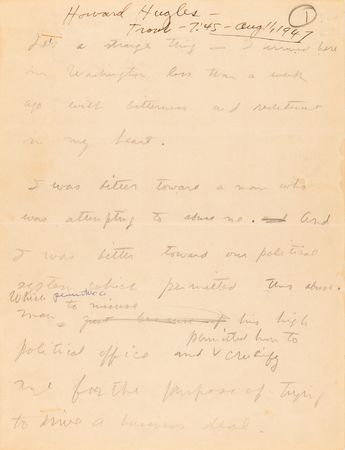 Howard Hughes –
– 7:45 – Aug 11, 1947
1
It's a strange thing – I arrived here
in Washington, less than a week
ago with bitterness and resentment
in my heart.
I was bitter toward a man who
was attempting to abuse me. And
I was bitter toward our political
system which permitted this abuse.
Which permitted
man to misuse
just because of his high
permitted him to
political office and crucify
me for the purpose of trying
to drive a business deal.